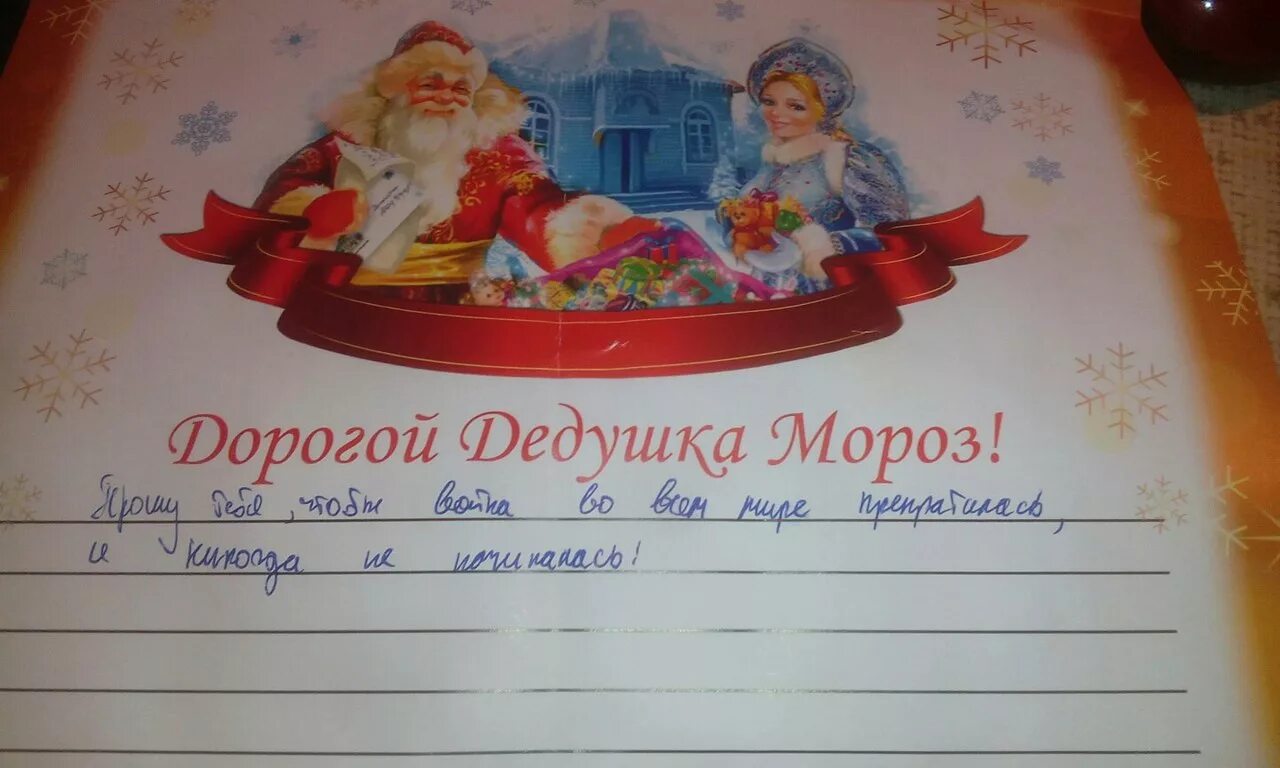 Дорогой Дедушка Мороз!
Прошу тебя, чтобы война во всем мире прекратилась,
и никогда не начиналась!